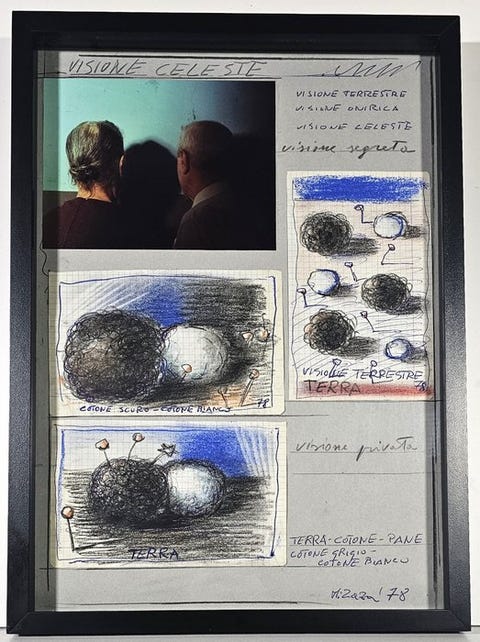 VISIONE CELESTE
VISIONE TERRESTRE
VISIONE ONIRICA
VISIONE CELESTE
visione segreta
VISIONE TERRESTRE
TERRA 78
COTONE SCURO - COTONE BIANCO 78
visione privata
TERRA
TERRA-COTONE-PANE
COTONE GRIGIO-
COTONE BIANCO
M. Zaza' 78